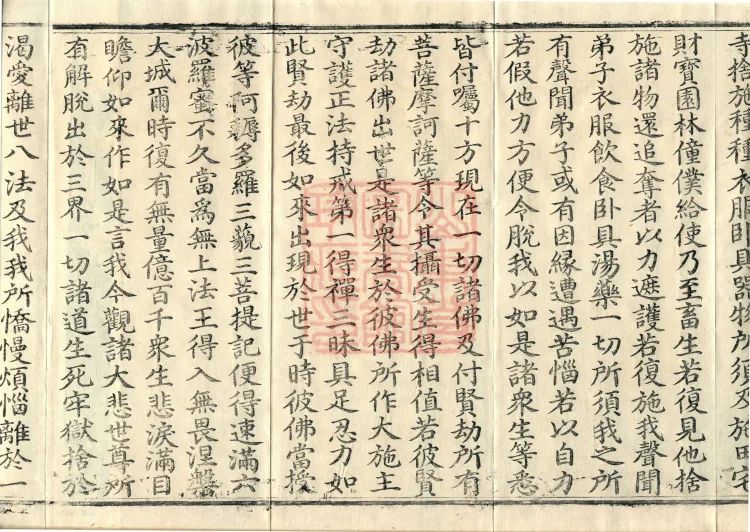 寺捨施種種衣服卧具器物所須及施田宅
財寶園林僮僕給使乃至畜生若復見他捨
施諸物還追奪者以力遮護若復施我聲聞
弟子衣服飲食卧具湯藥一切所須我之所
有聲聞弟子或有因緣遭遇苦惱若以自力
若假他力方便令脫我以如是諸衆生等悉
皆付囑十方現在一切諸佛及付賢劫所有
菩薩摩訶薩等令其攝受生得相值若彼賢
劫諸佛出世是諸衆生於彼佛所作大施主
守護正法持戒第一得禪三昧具足忍力如
此賢劫最後如來出現於世于時彼佛當授
彼等阿耨多羅三藐三菩提記便得速滿六
波羅蜜不久當爲無上法王得入無畏涅槃
大城爾時復有無量億百千衆生悲淚滿目
瞻仰如來作如是言我今觀諸大悲世尊所
有解脫出於三界一切諸道生死牢獄捨於
渴愛離世八法及我我所憍慢煩惱離於一